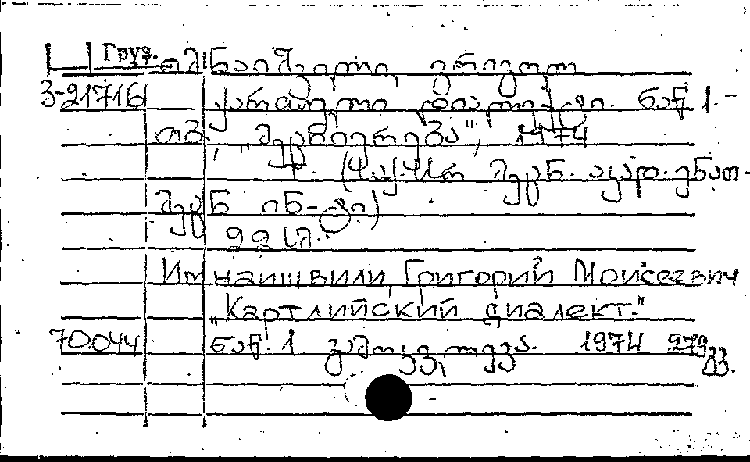 Груз. იმნაიშვილი, გრიგოლ
3-21716 ქართლური დიალექტი. ნაწ. 1.-
თბ., "მეცნიერება", 1974
(საქ. სსრ მეცნ. აკად. ენათ-
მეცნ. ინ-ტი)
Имнаишвили, Григорий Моисеевич
"Картлийский диалект."
70044 ნაწ. 1 გამოკვლევა. 1974 279 გვ.